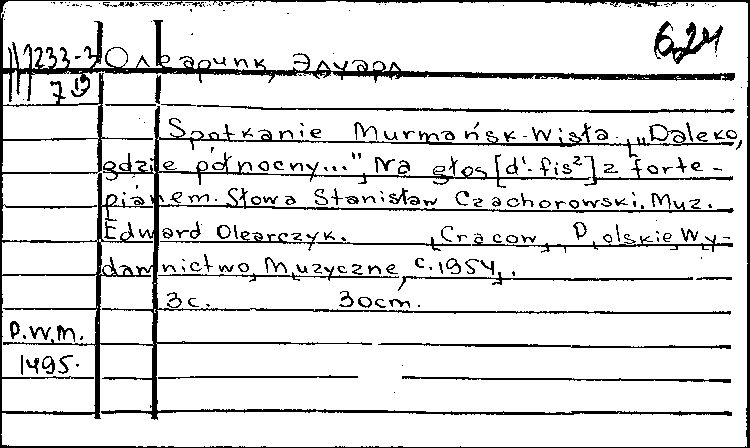 6.24
233-3 Олеарчик, Эдуард
7 19
Spotkanie Murmańsk-Wisła. „Daleko,
gdzie północny...”, Na głos [d¹-fis²] z forte-
pianem. Słowa Stanisław Czachorowski. Muz.
Edward Olearczyk. [Cracow], Polskie Wy-
dawnictwo Muzyczne, c.1954.
3c. 30cm.
P.W.M.
1495.